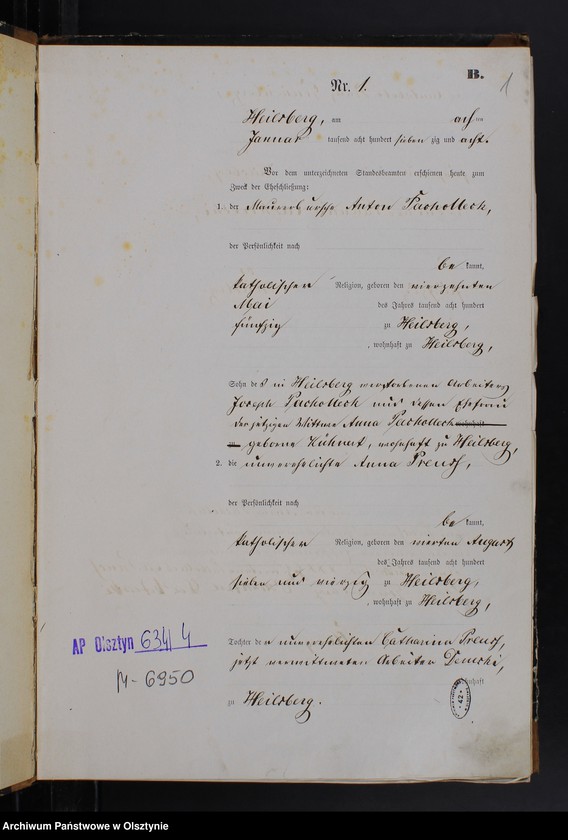 B.
1
Nr. 1.
Heilsberg, am acht ten
Januar tausend acht hundert sieben zig und acht.
Vor dem unterzeichneten Standesbeamten erschienen heute zum
Zweck der Eheschließung:
1. der Maurerbursche Anton Pachollech,
der Persönlichkeit nach
be kannt,
katholischer Religion, geboren den vierzehnten
Mai des Jahres tausend acht hundert
fünfzig zu Heilsberg,
, wohnhaft zu Heilsberg,
Sohn des in Heilsberg verstorbenen Arbeiters
Joseph Pachollech und dessen Ehefrau
der jetzigen Wittwe Anna Pachollech wohnhaft
zu geborne Kühnert, wohnhaft zu Heilsberg,
2. die unverehelichte Anna Preuß,
der Persönlichkeit nach
be kannt,
katholischer Religion, geboren den vierten August
des Jahres tausend acht hundert
sieben und vierzig zu Heilsberg,
, wohnhaft zu Heilsberg,
Tochter der unverehelichten Catharina Preuß,
jetzt verwittweten Arbeiter Demski,
wohnhaft
zu Heilsberg.
AP Olsztyn 634/4
M-6950
42
Archiwum Państwowe w Olsztynie